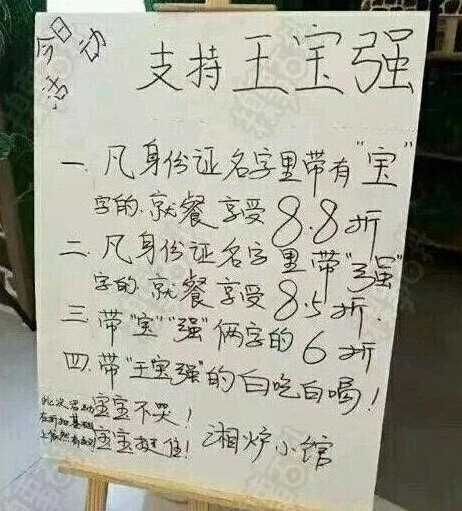 今日活动
支持王宝强
一 凡身份证名字里带有"宝"
字的.就餐享受8.8折
二.凡身份证名字里带"强"
字的.就餐享受8.5折.
三 带"宝""强"俩字的6折
四.带"王宝强"的白吃白喝!
宝宝不哭!
宝宝挺住!
此次活动
在折扣基础
上依然有效
湘炉小馆